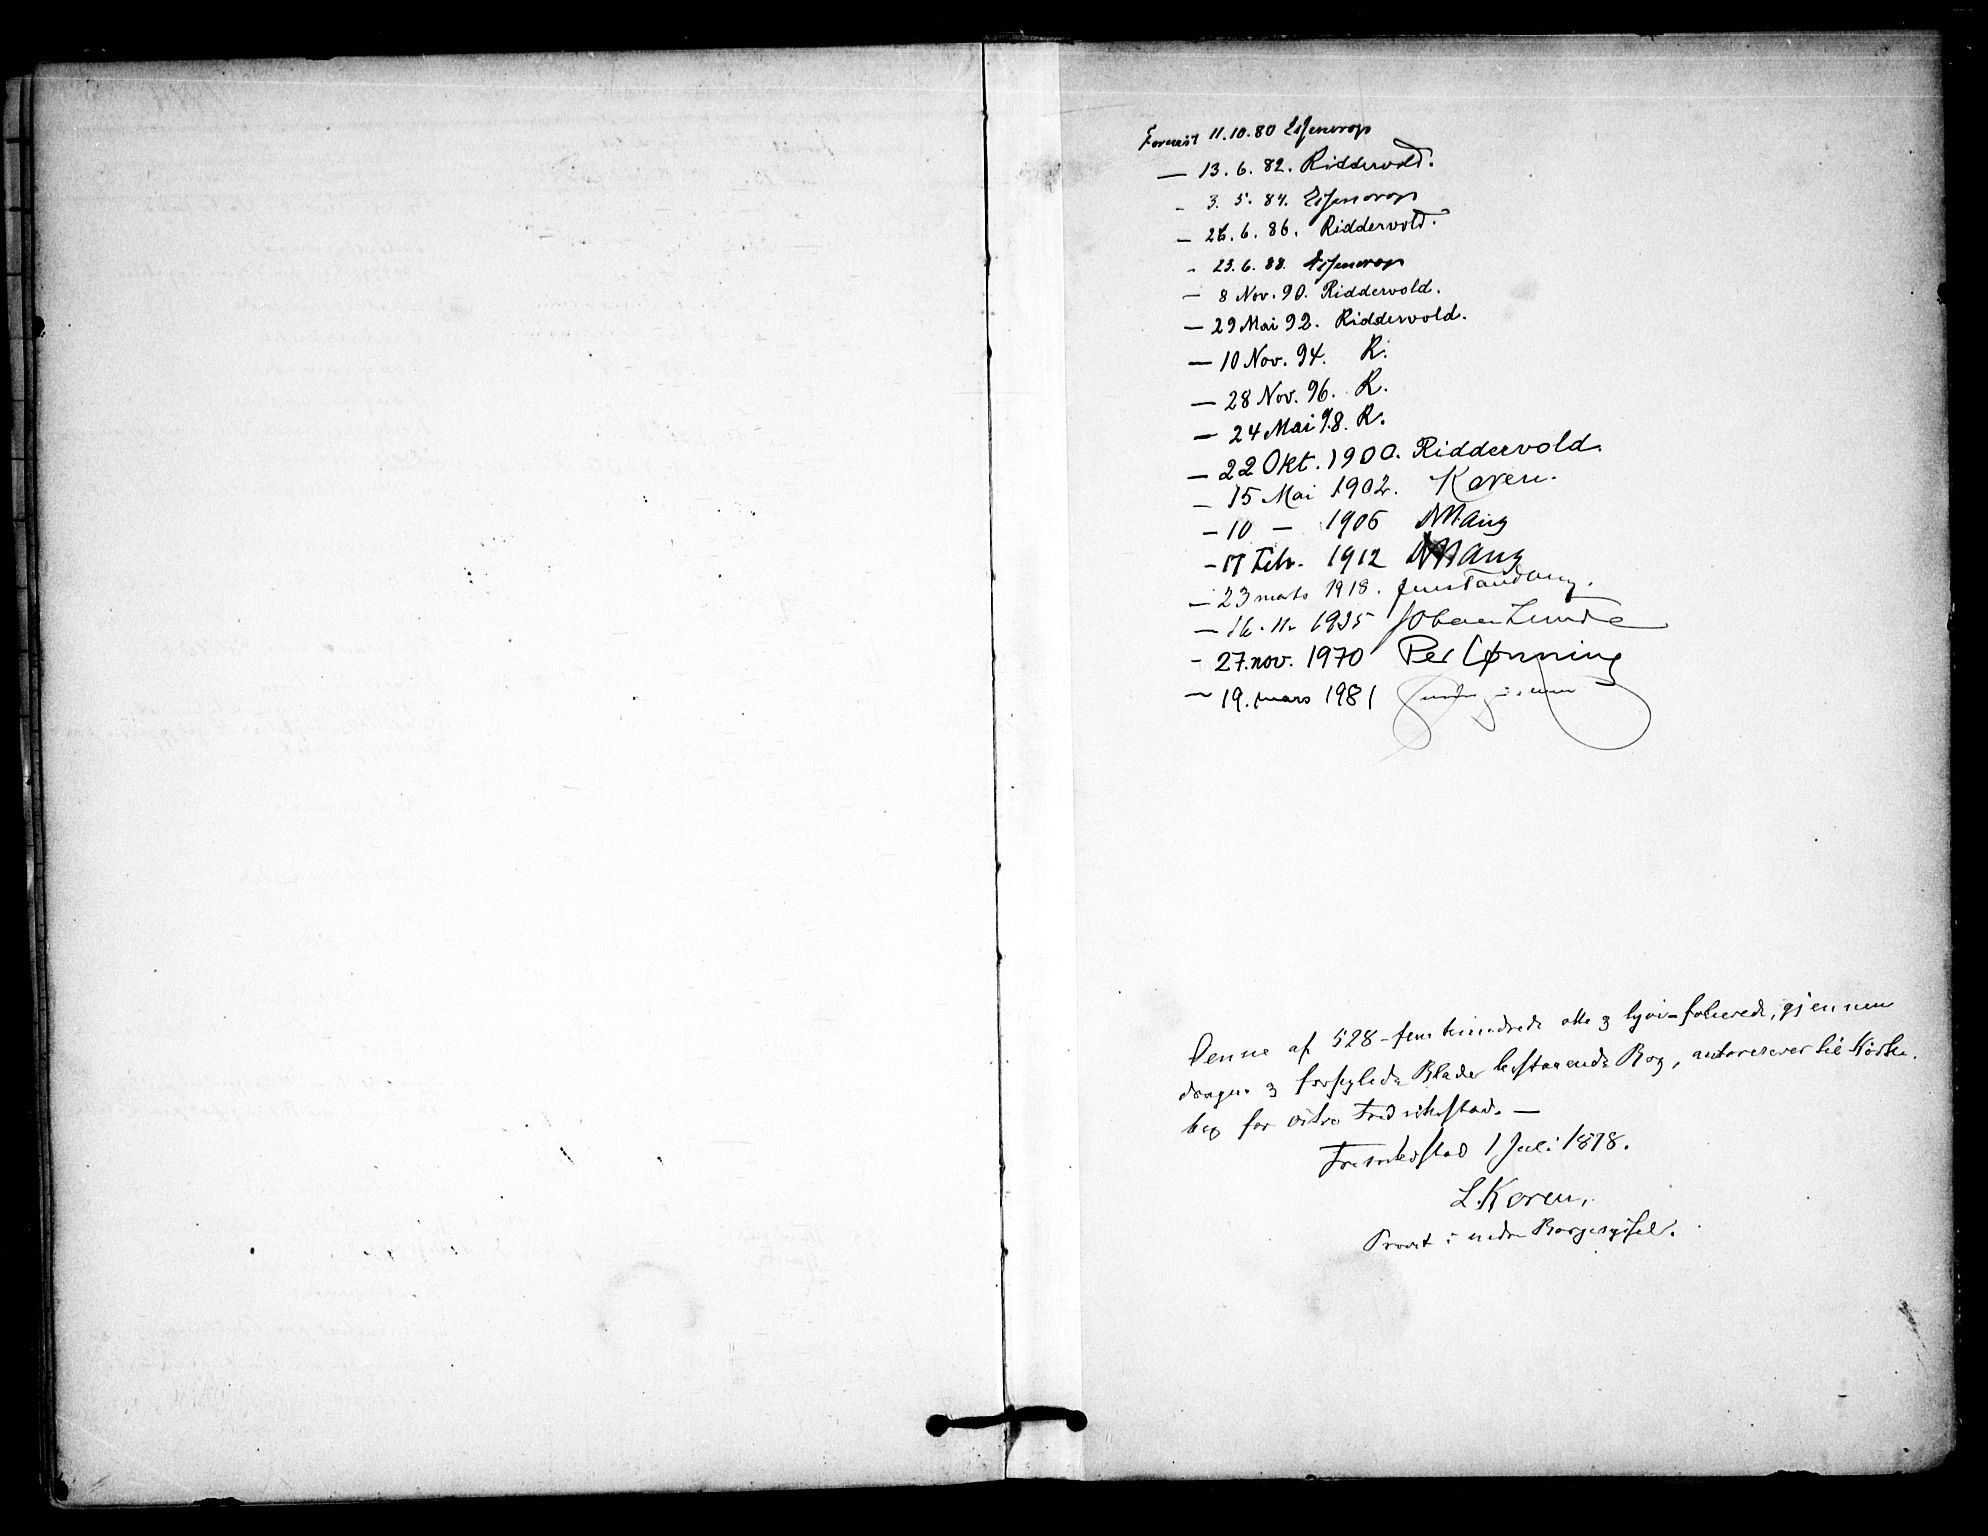 Forevist 11.10.80 Essendrop
— 13. 6. 82. Riddervold.
- 3. 5. 84. Essendrop
— 26. 6. 86. Riddervold.
- 23. 6. 88. Essendrop
— 8 Nov. 90. Riddervold.
— 29 Mai 92. Riddervold.
— 10 Nov. 94. R.
— 28 Nov. 96. R.
— 24 Mai 98. R.
— 22 Okt. 1900. Riddervold.
— 15 Mai 1902. Koren.
— 10 — 1906
— 17 Febr. 1912
— 23 mars 1918. Jens Tandberg.
— 16. 11. 1935 Johan Lunde
- 27. nov. 1970 Per Lønning
— 19. mars 1981
Denne af 528 - fem hundrede otte & tyve - folierede, gjennem
dragne & forseglede Blade bestaaende Bog, autoriseres til Kirke-
bog for østre Fredrikstad. —
Fredrikstad 1 Juli 1878.
L. Koren,
Provst i nedre Borgesyssel.